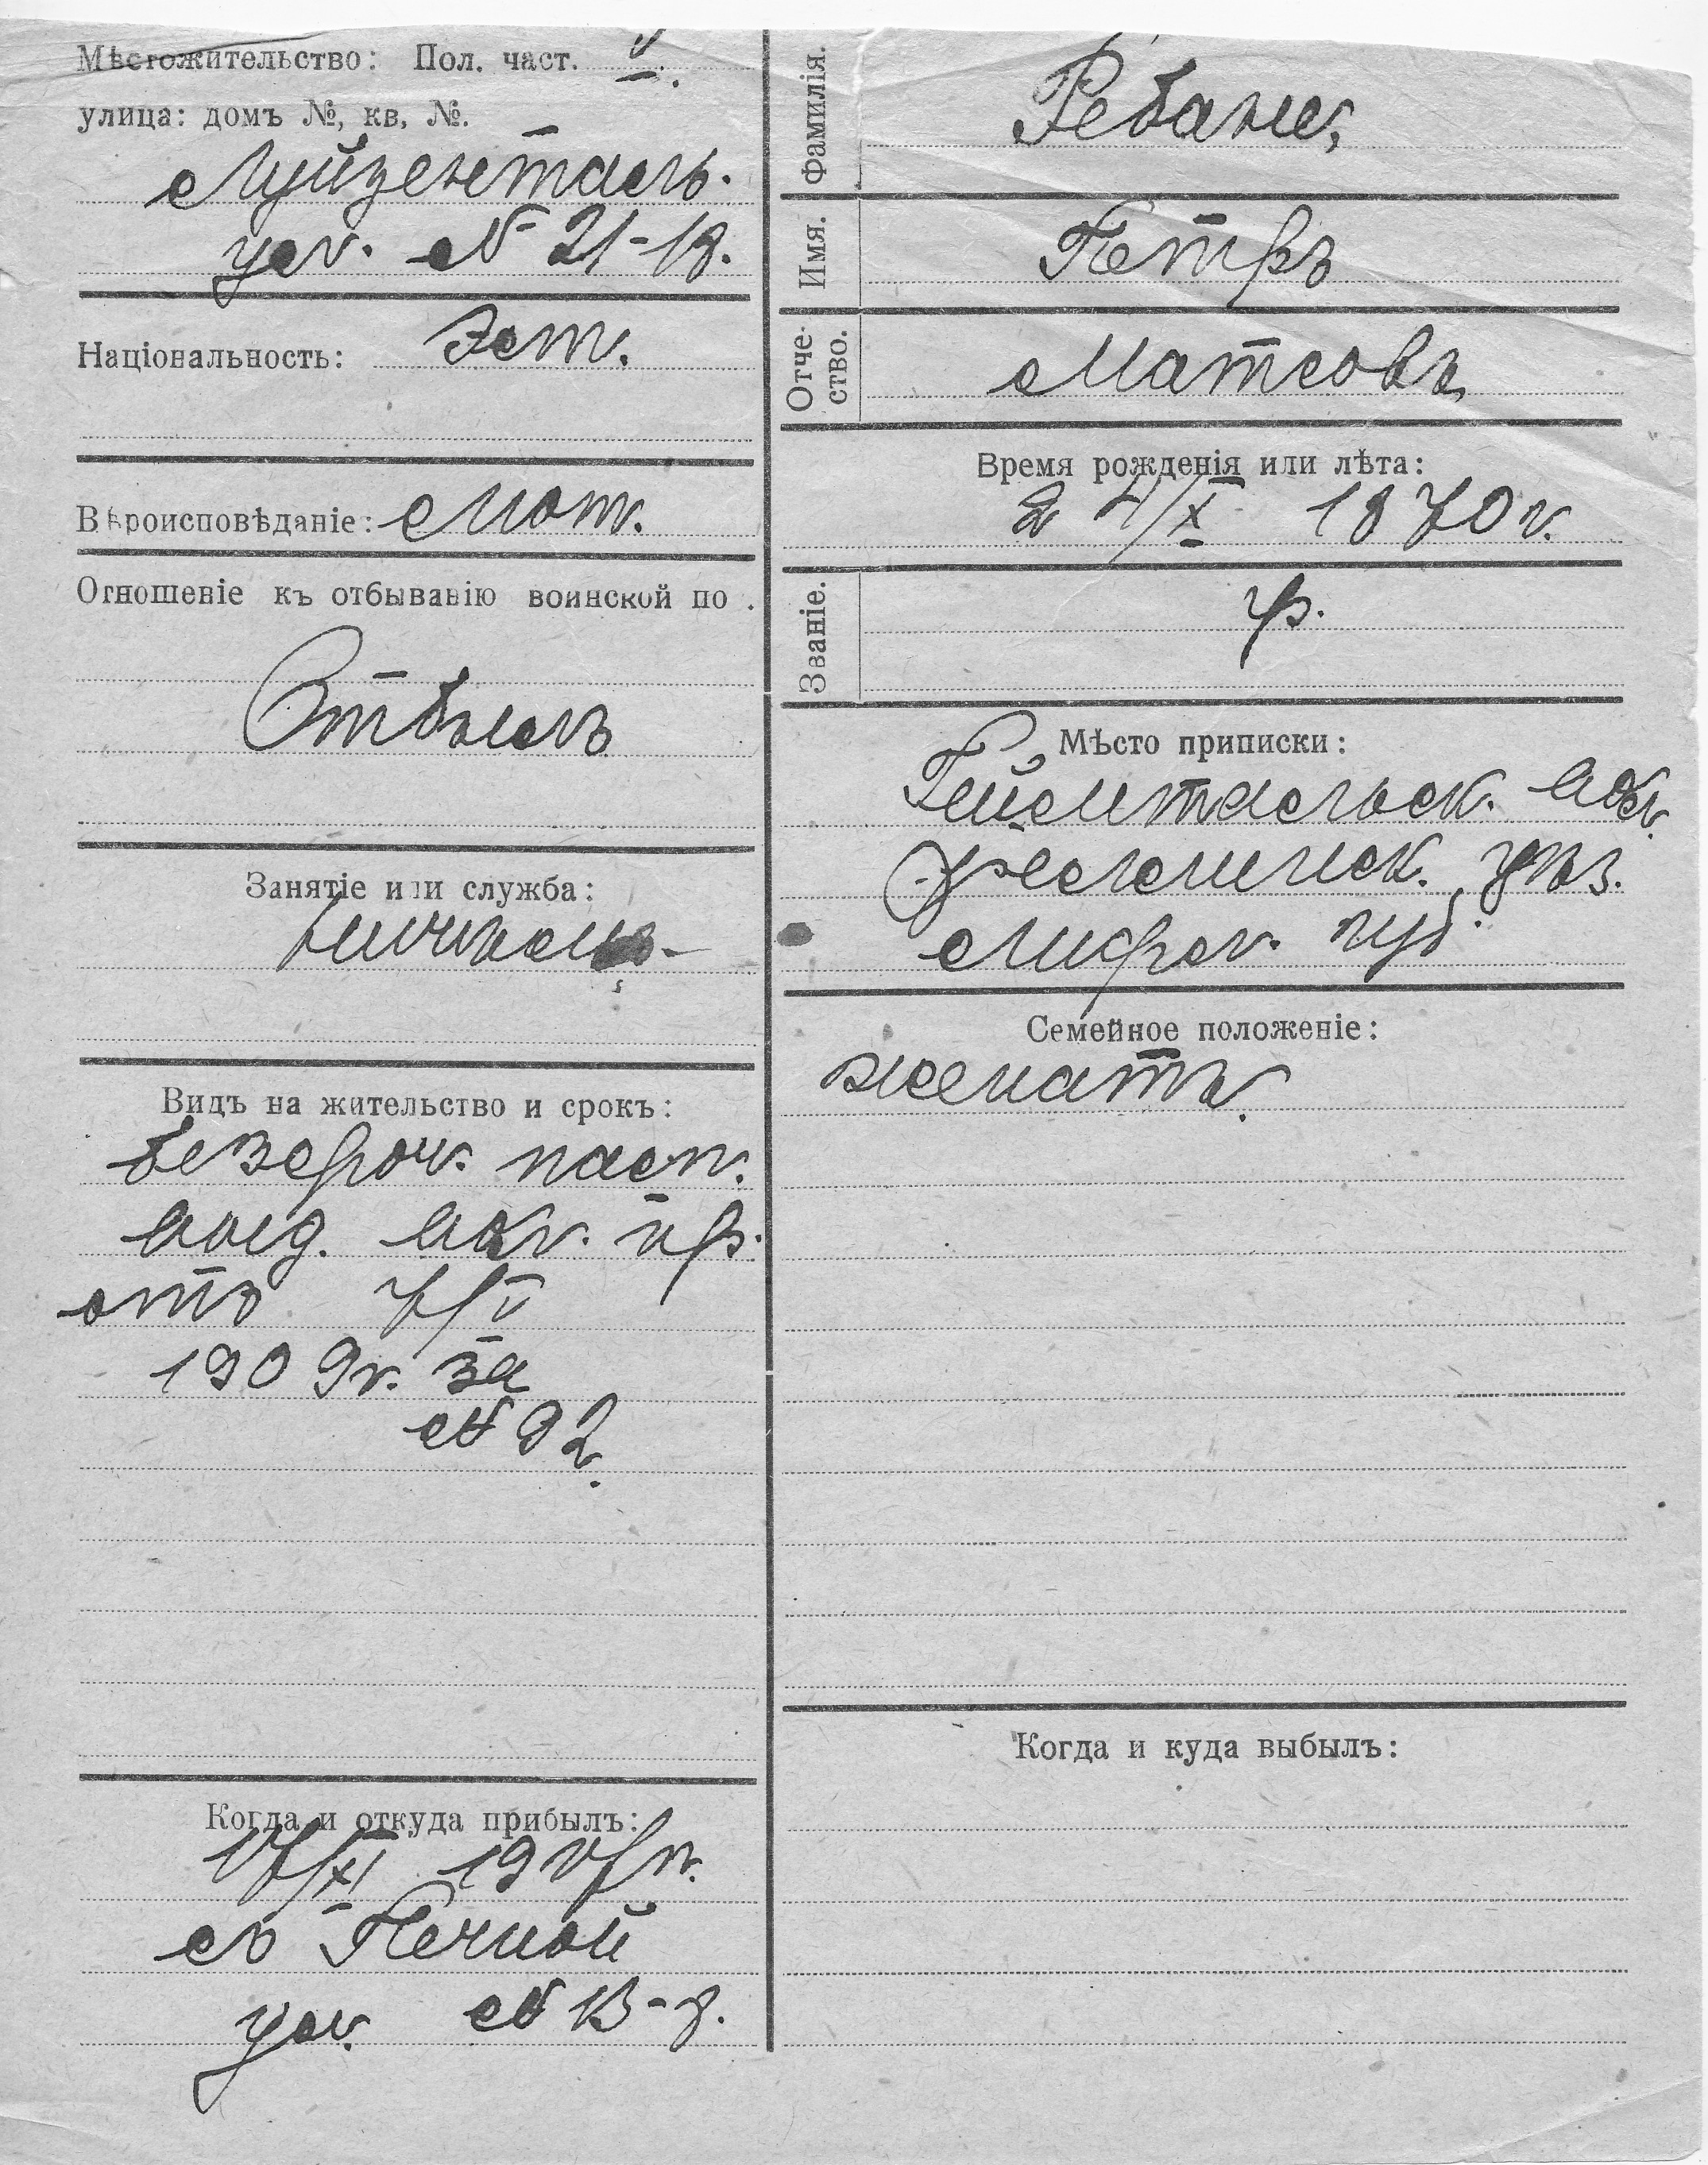 Мѣстожительство: Пол. част. V.
улица: домъ №, кв. №.
Луйзенталь.
ул. № 21-18.
Національность: Эст.
Вѣроисповѣданіе: Лют.
Отношеніе къ отбыванію воинской по .
Отбылъ
Занятіе или служба:
Видъ на жительство и срокъ:
безсроч. пасп.
выд. вол. пр.
отъ 7/V
1909 г. за
№ 92.
Когда и откуда прибылъ:
17/XI 1917 г.
съ Печной
ул. № 13-8.
Фамилія. Ребане,
Имя. Петръ
Отче-
ство. Матсовъ
Время рожденія или лѣта:
24/X 1870 г.
Званіе. кр.
Мѣсto приписки:
Геймтальск. вол.
Феллинск. уѣз.
Лифл. губ.
Семейное положеніе:
женатъ.
Когда и куда выбылъ: